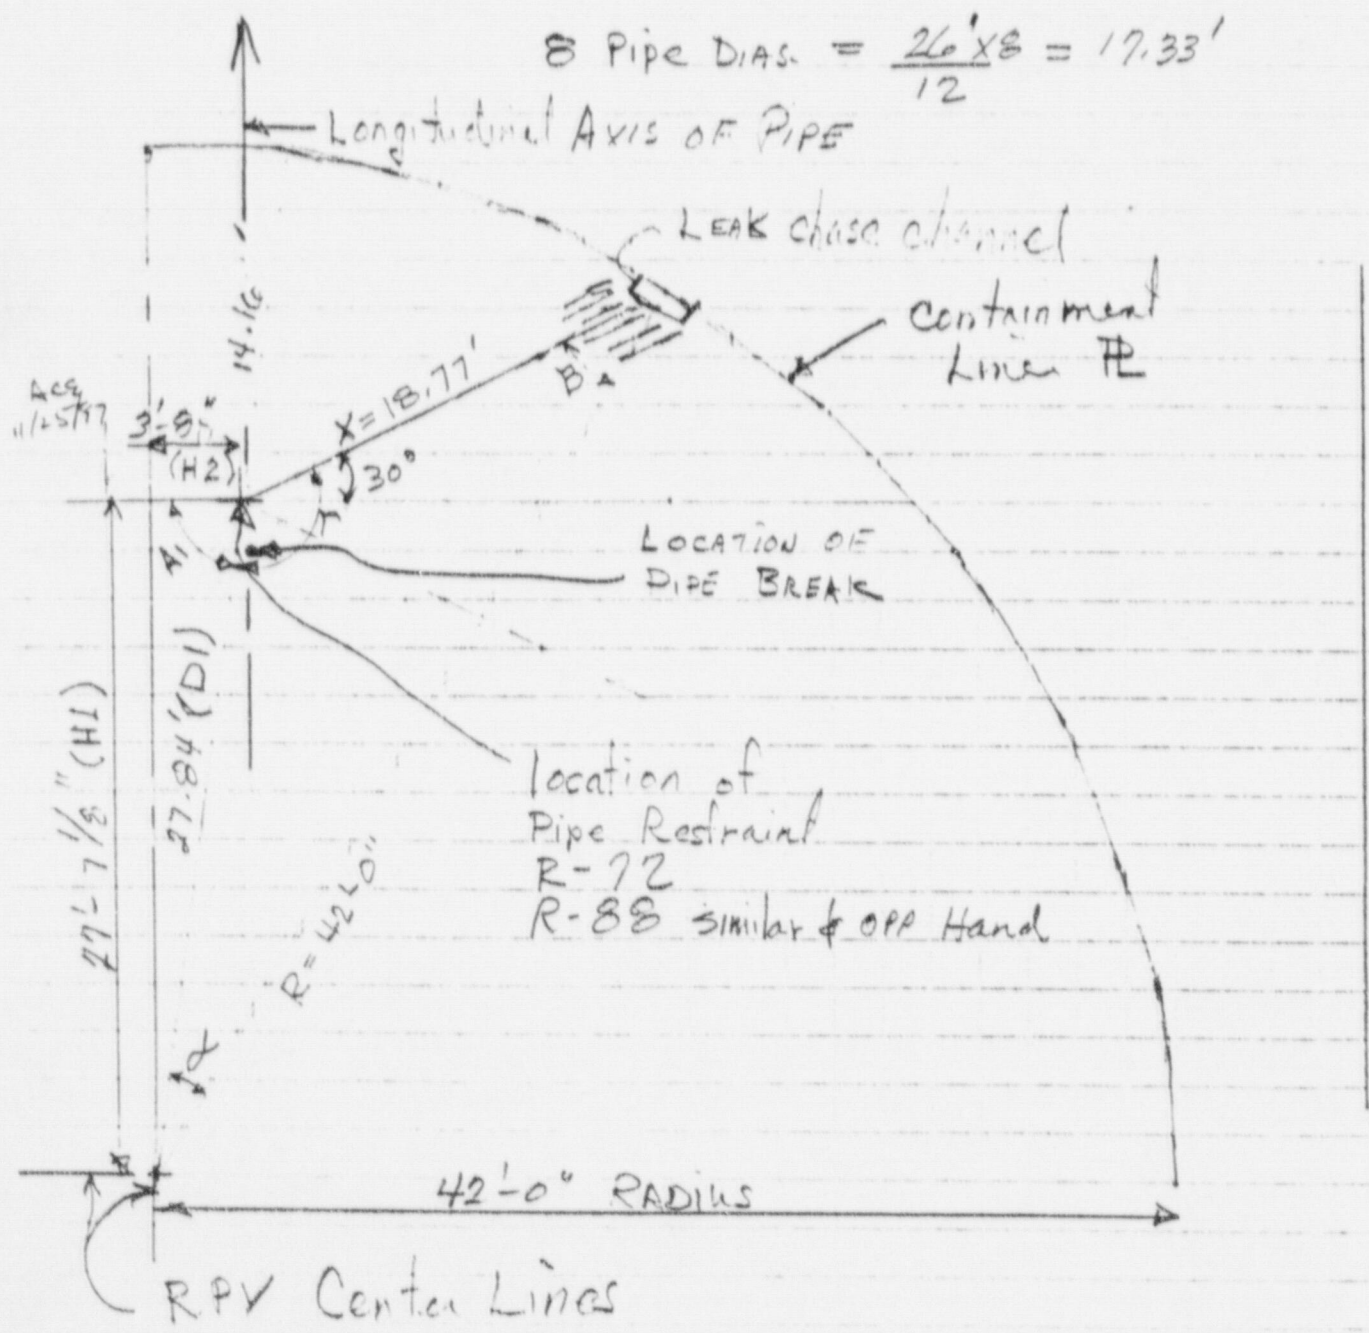 8 Pipe DIAS. = 26'x8 / 12 = 17.33'
Longitudinal AXIS OF PIPE
LEAK chase channel
Containment
Liner PL
14.16'
X=18.77'
B
30°
3'-8"
(H2)
11/25/97
A1
LOCATION OF
PIPE BREAK
27'-7 1/8" (H1)
27.84' (D1)
location of
Pipe Restraint
R-72
R-88 similar & OPP Hand
R=42'-0"
α
42'-0" RADIUS
RPV Center Lines